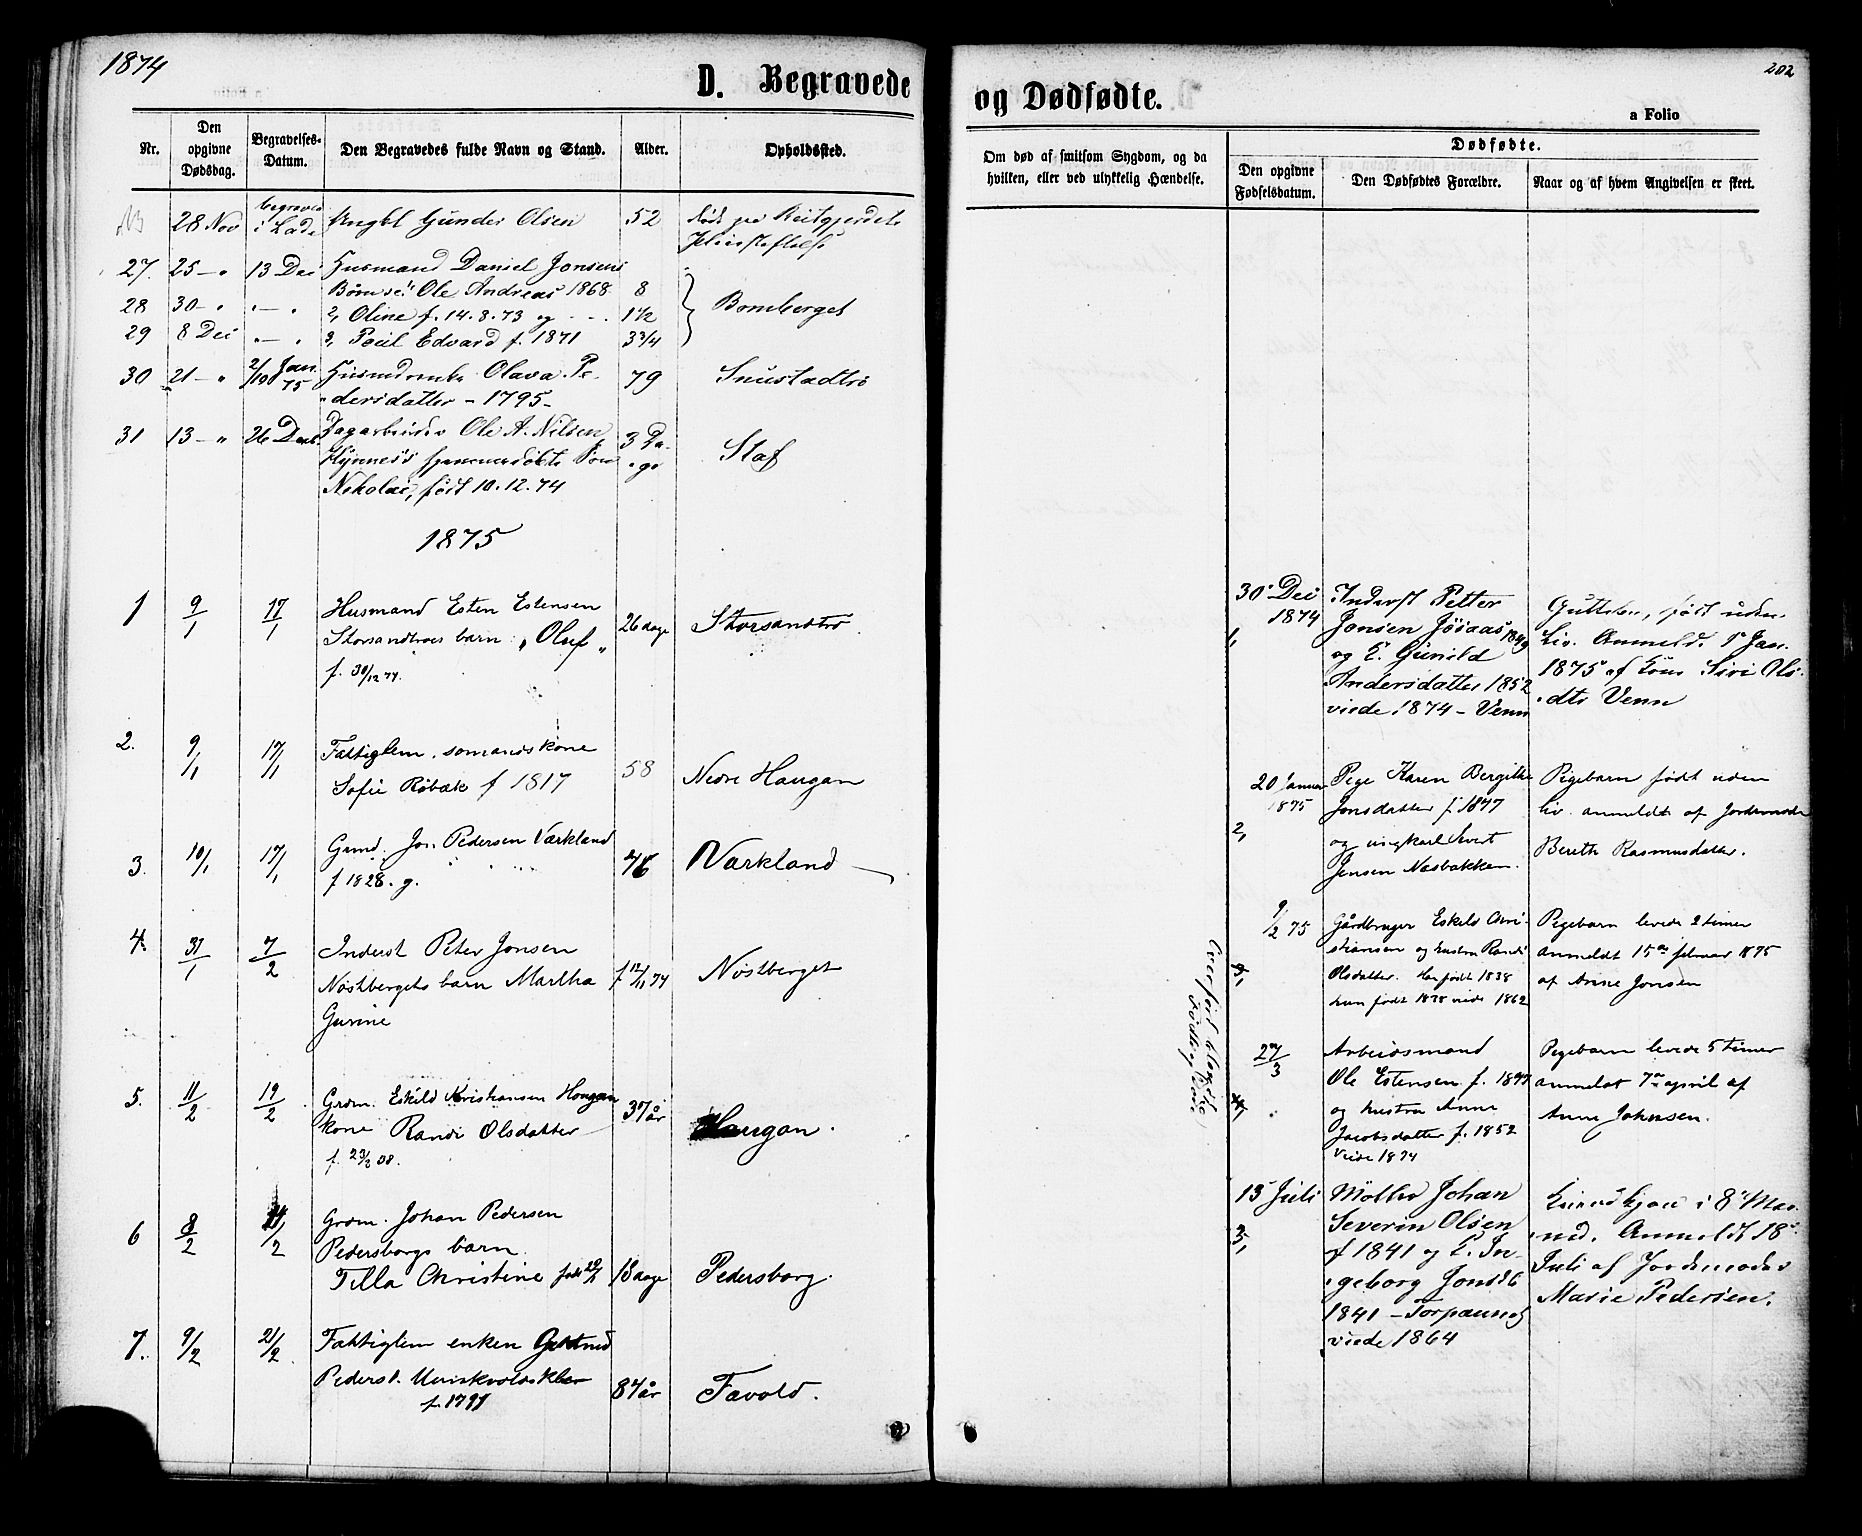 1874
D. Begravede
Nr.
Den opgivne Dødsdag.
Begravelses-Datum.
Den Begravedes fulde Navn og Stand.
Alder.
Opholdssted.
28 Nov begravet i Lade Ungkl Gunder Olsen 52
27. 25 — " 13 Dec Husmand Daniel Jonsens
Børn se: 1, Ole Andreas 1868 8
28 30 — " " — " 2, Oline f. 14.8.73 og 1 1/2 Bomberget
29 8 Dec " — " 3, Paul Edvard f. 1871 3 3/4
30 21 — " 2/10 Jan 75 Olava Pe- 79 Snustadtrø
dersdatter - 1795-
31 13 — " 26 Decb Dagarbeider Ole A. Nilsen 3 Da- Staf
ge
Nikolai, født 10.12.74
1875
1 9/1 17/1 Husmand Esten Estensen
Storsandtrøes barn: "Oluf" 26 dage Storsandtrø
f. 30/12 74.
2. 9/1 17/1 Fattiglem. somandskone 58 Nedre Haugan
Sofie Røbak f 1817
3. 10/1 17/1 Grmd. Joh. Pedersen Værkland 46 Værkland
f 1828. g.
4. 31/1 7/2 Inderst Peter Jonsen
Nøstbergets barn Martha f 12/11 74 Nøstberget
Gurine
5. 11/2 19/2 Grdm. Eskild Kristiansen Haugan 37 år Haugan.
kone Randi Olsdatter
f. 23/2 38.
6 8/2 14/2 Grdm. Johan Pedersen
Pedersborgs barn
Tilla Christine født 20/1 18 dage Pedersborg.
7. 9/2 21/2 Fattiglem enken Gjertrud
Pedersd. 84 år Favold.
f. 1791
202
og Dødfødte.
a Folio
Om død af smitsom Sygdom, og da hvilken, eller ved ulykkelig Hændelse.
Dødfødte.
Den opgivne Fødselsdatum.
Den Dødfødtes Forældre.
Naar og af hvem Angivelsen er skeet.
30 Dec 1874
1,
Inderst Petter
Jonsen Jøsaas 1849
og E. Gunild
Andersdatter 1852
viede 1874 - Venn
Guttebn, født uden
Liv. Anmeldt 5 Jan.
1875 af Kone Siri Ols-
dtr Venn
20 Januar 1875
2,
Pige Karen Bergitte
Jonsdatter f. 1847
og ungkarl Sivert
Jensen Næsbakken.
Pigebarn født uden
Liv. anmeldt af Jordemoder
Bereth Rasmusdatter.
9/2 75
3,
Gårdbruger Eskild Chri-
stiansen og hustru Randi
Olsdatter. Han født 1838
hun født 1838 viede 1862
Pigebarn levede 2 timer
anmeldt 15de februar 1875
af Anne Jonsen
27/3
4,
Arbeidsmand
Ole Estensen f. 1847
og hustru Anne
Jacobsdatter f. 1852
Viede 1874
Pigebarn levede 5 timer
anmeldt 7de april af
Anne Johnsen.
Overført blandt
fødte og døde.
13 Juli
3,
Møller Johan
Severin Olsen
f 1841 og E. In-
geborg Jonsdt
1841 - Torpaunet
viede 1864
Kvindkjøn i 8de Maa-
ned. Anmeldt 18de
Juli af Jordemoder
Marie Pedersen.